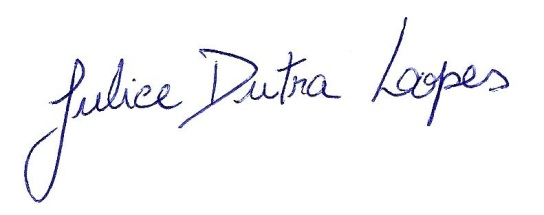 Julice Dutra Lopes